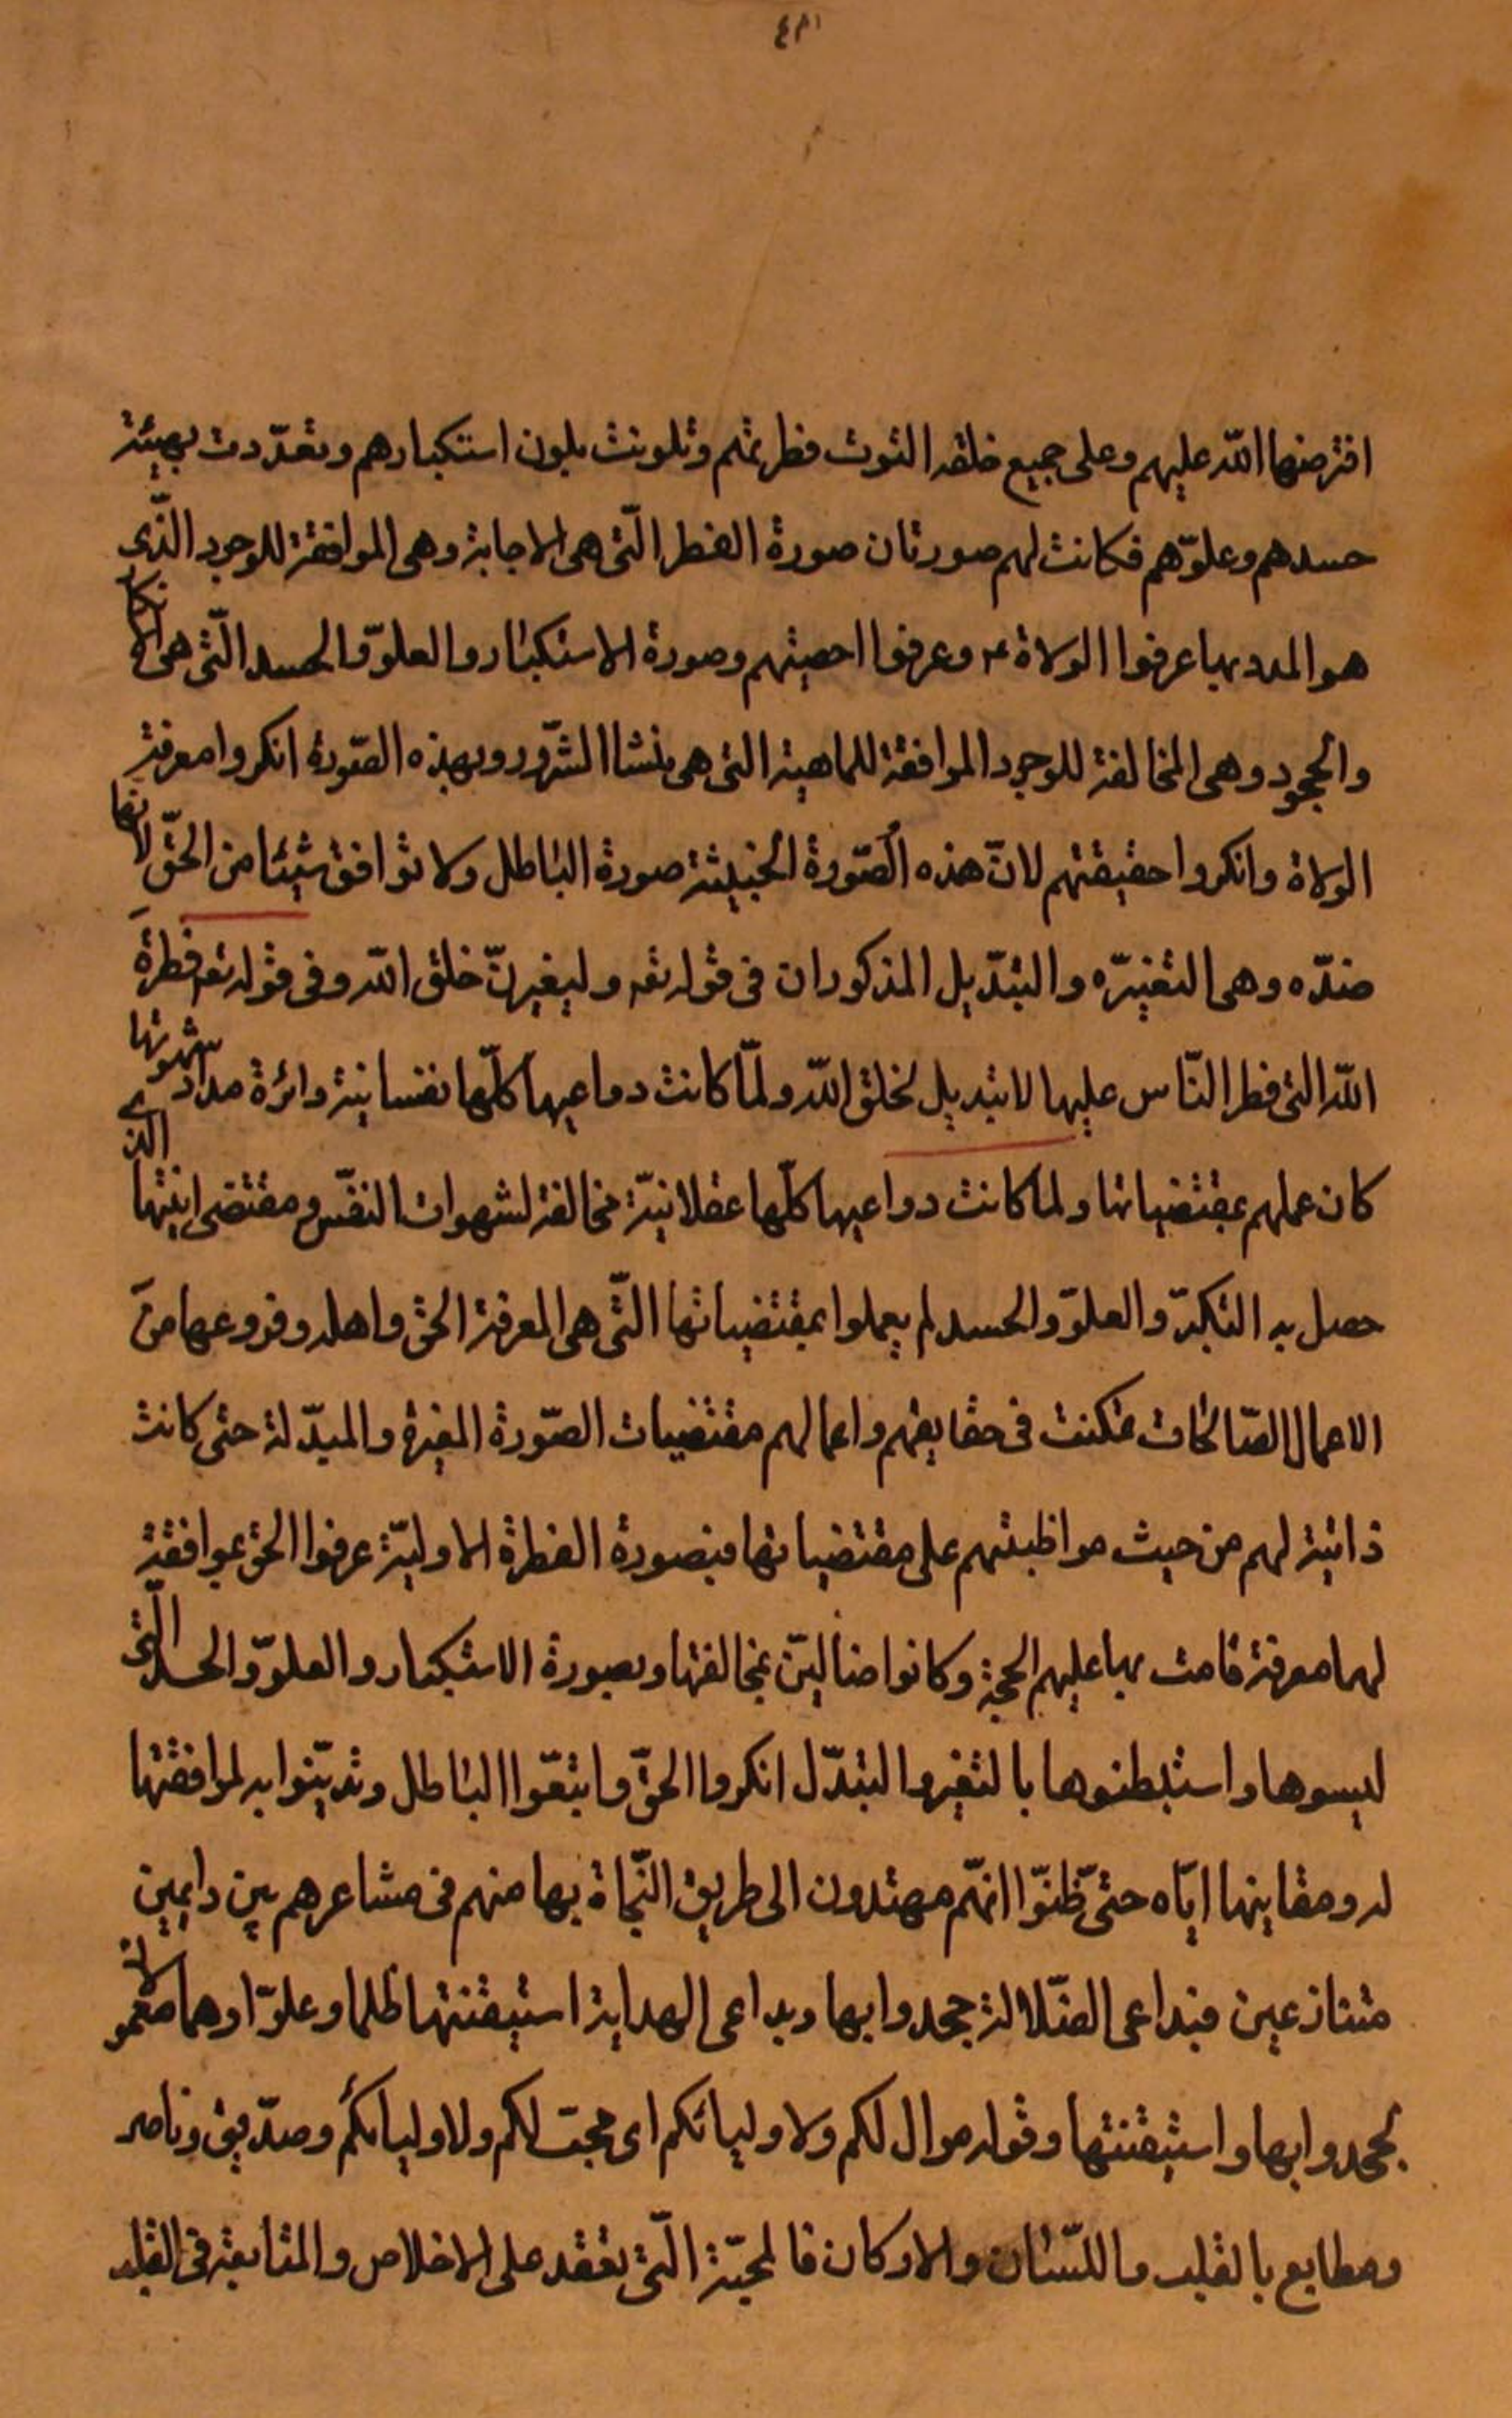 افترضها الله عليهم وعلى جميع خلقه التوت فطرتهم وتلونت بلون استكبارهم وتعدّدت بهيئة
حسدهم وعلوّهم فكانت لهم صورتان صورة الفطر الّتى هى الاجابة وهى الموافقة للوجود الذّى
هو المدد بها عرفوا الولاة ع وعرفوا احصيتهم وصورة الاستكبار والعلوّ والحسد الّتى هى الانكار
والجحود وهى المخالفة للوجود الموافقة للماهية التى هى منشا الشّرور وبهذه الصّورة انكروا معرفة
الولاة وانكروا حقيقتهم لانّ هذه الصّورة الخبيثة صورة الباطل ولا توافق شيئا من الحقّ لانها
ضدّه وهى التغييرّ والتبّديل المذكوران فى قوله تعه وليغيرنّ خلق الله وفى قوله تعه فطرة
الله التى فطر النّاس عليها لا تبديل لخلق الله ولمّا كانت دواعيها كلّها نفسانية دائرة مدار شهوتها
كان عملهم بمقتضياتها ولما كانت دواعيها كلّها عقلانيّة مخالفة لشهوات النفّس ومقتضى انيتها الذى
حصل به التكبرّ والعلوّ والحسد لم يعملوا بمقتضياتها التّى هى المعرفة الحق واهله وفروعها من
الاعمال الصّالحات تمكنت فى حقايقهم واعمالهم مقتضيات الصّورة المغيرة والمبدّلة حتى كانت
ذاتية لهم من حيث مواظبتهم على مقتضياتها فبصورة الفطرة الاوليّة عرفوا الحق بموافقة
لهما معرفة قامت بها عليهم الحجة وكانوا ضاليّن بمخالفتها وبصورة الاستكبار والعلوّ والحسد الّتى
لبسوها واستبطنوها بالتغير والتبدّل انكروا الحقّ واتبعّوا الباطل وتديّنوا به لموافقتها
له ومقاينها ايّاه حتىّ ظنوّا انهّم مهتدون الى طريق النّجاة بها منهم فى مشاعرهم بين داعيين
متنازعين فبداعى الضّلالة جحدوا بها وبداعى الهداية استيقنتها ظلما وعلوّا وهما مفعولان
لجحدوا بها واستيقنتها وقوله موال لكم ولاوليائكم اى محبّ لكم ولاوليائكم وصدّيق وناصر
ومطايع بالقلب واللّسان والاركان فالمحبّة الّتى تعقد على الاخلاص والمتابعة فى القلب